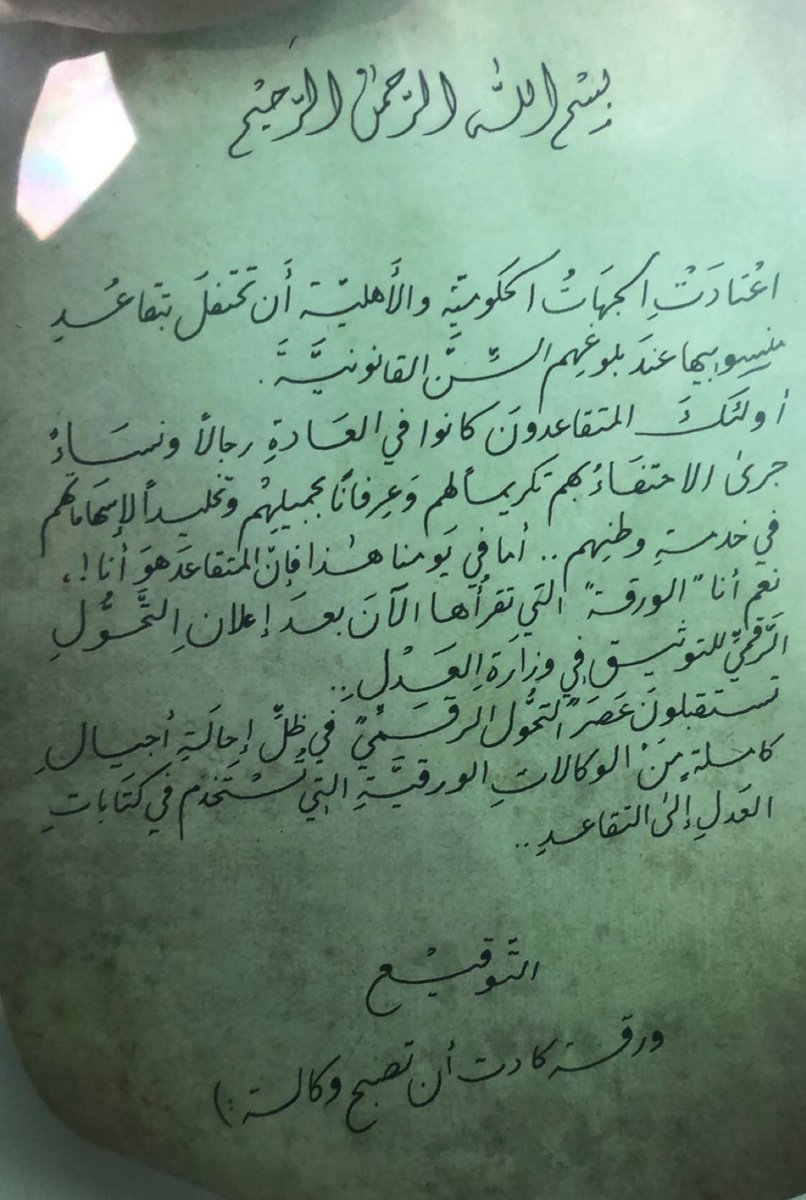 بِسْمِ اللهِ الرَّحمنِ الرَّحِيْمِ
اعْتَادَتْ الجِهَاتُ الحكوميّة والأَهليّة أَن تحتفلَ بتقاعُدِ
منسوبيها عندَ بلوغِهِم السِّنَّ القانونيَّةَ .
أولئكَ المتقاعدونَ كانوا في العَادةِ رجالاً ونسَاءً
جرى الاحتفَاءُ بهم تكريماً لهم وَعِرفانًا بجميلِهِم وتخليداً لإسهاماتهم
في خدمةِ وطنِهم .. أما في يَومنا هٰذا فإنّ المتقاعدَ هوَ أنا ! ،
نعم أنا "الورقة" التي تقرأُها الآنَ بعدَ إعلانِ التَّحَوُّلِ
الرَّقميِّ للتوثيقِ في وزارَةِ العَدْلِ ..
تستقبلونَ عَصَرَ "التحوُّل الرقَميْ" في ظلِّ إحالَةِ أجيالٍ
كاملةٍ مِنْ الوكالاتِ الورقيَّةِ التِي تُسْتَخدَم في كتَاباتِ
العَدلِ إلى التقاعدِ ..
التَّوقيْع
ورقة كادت أن تصبح وكالة :)